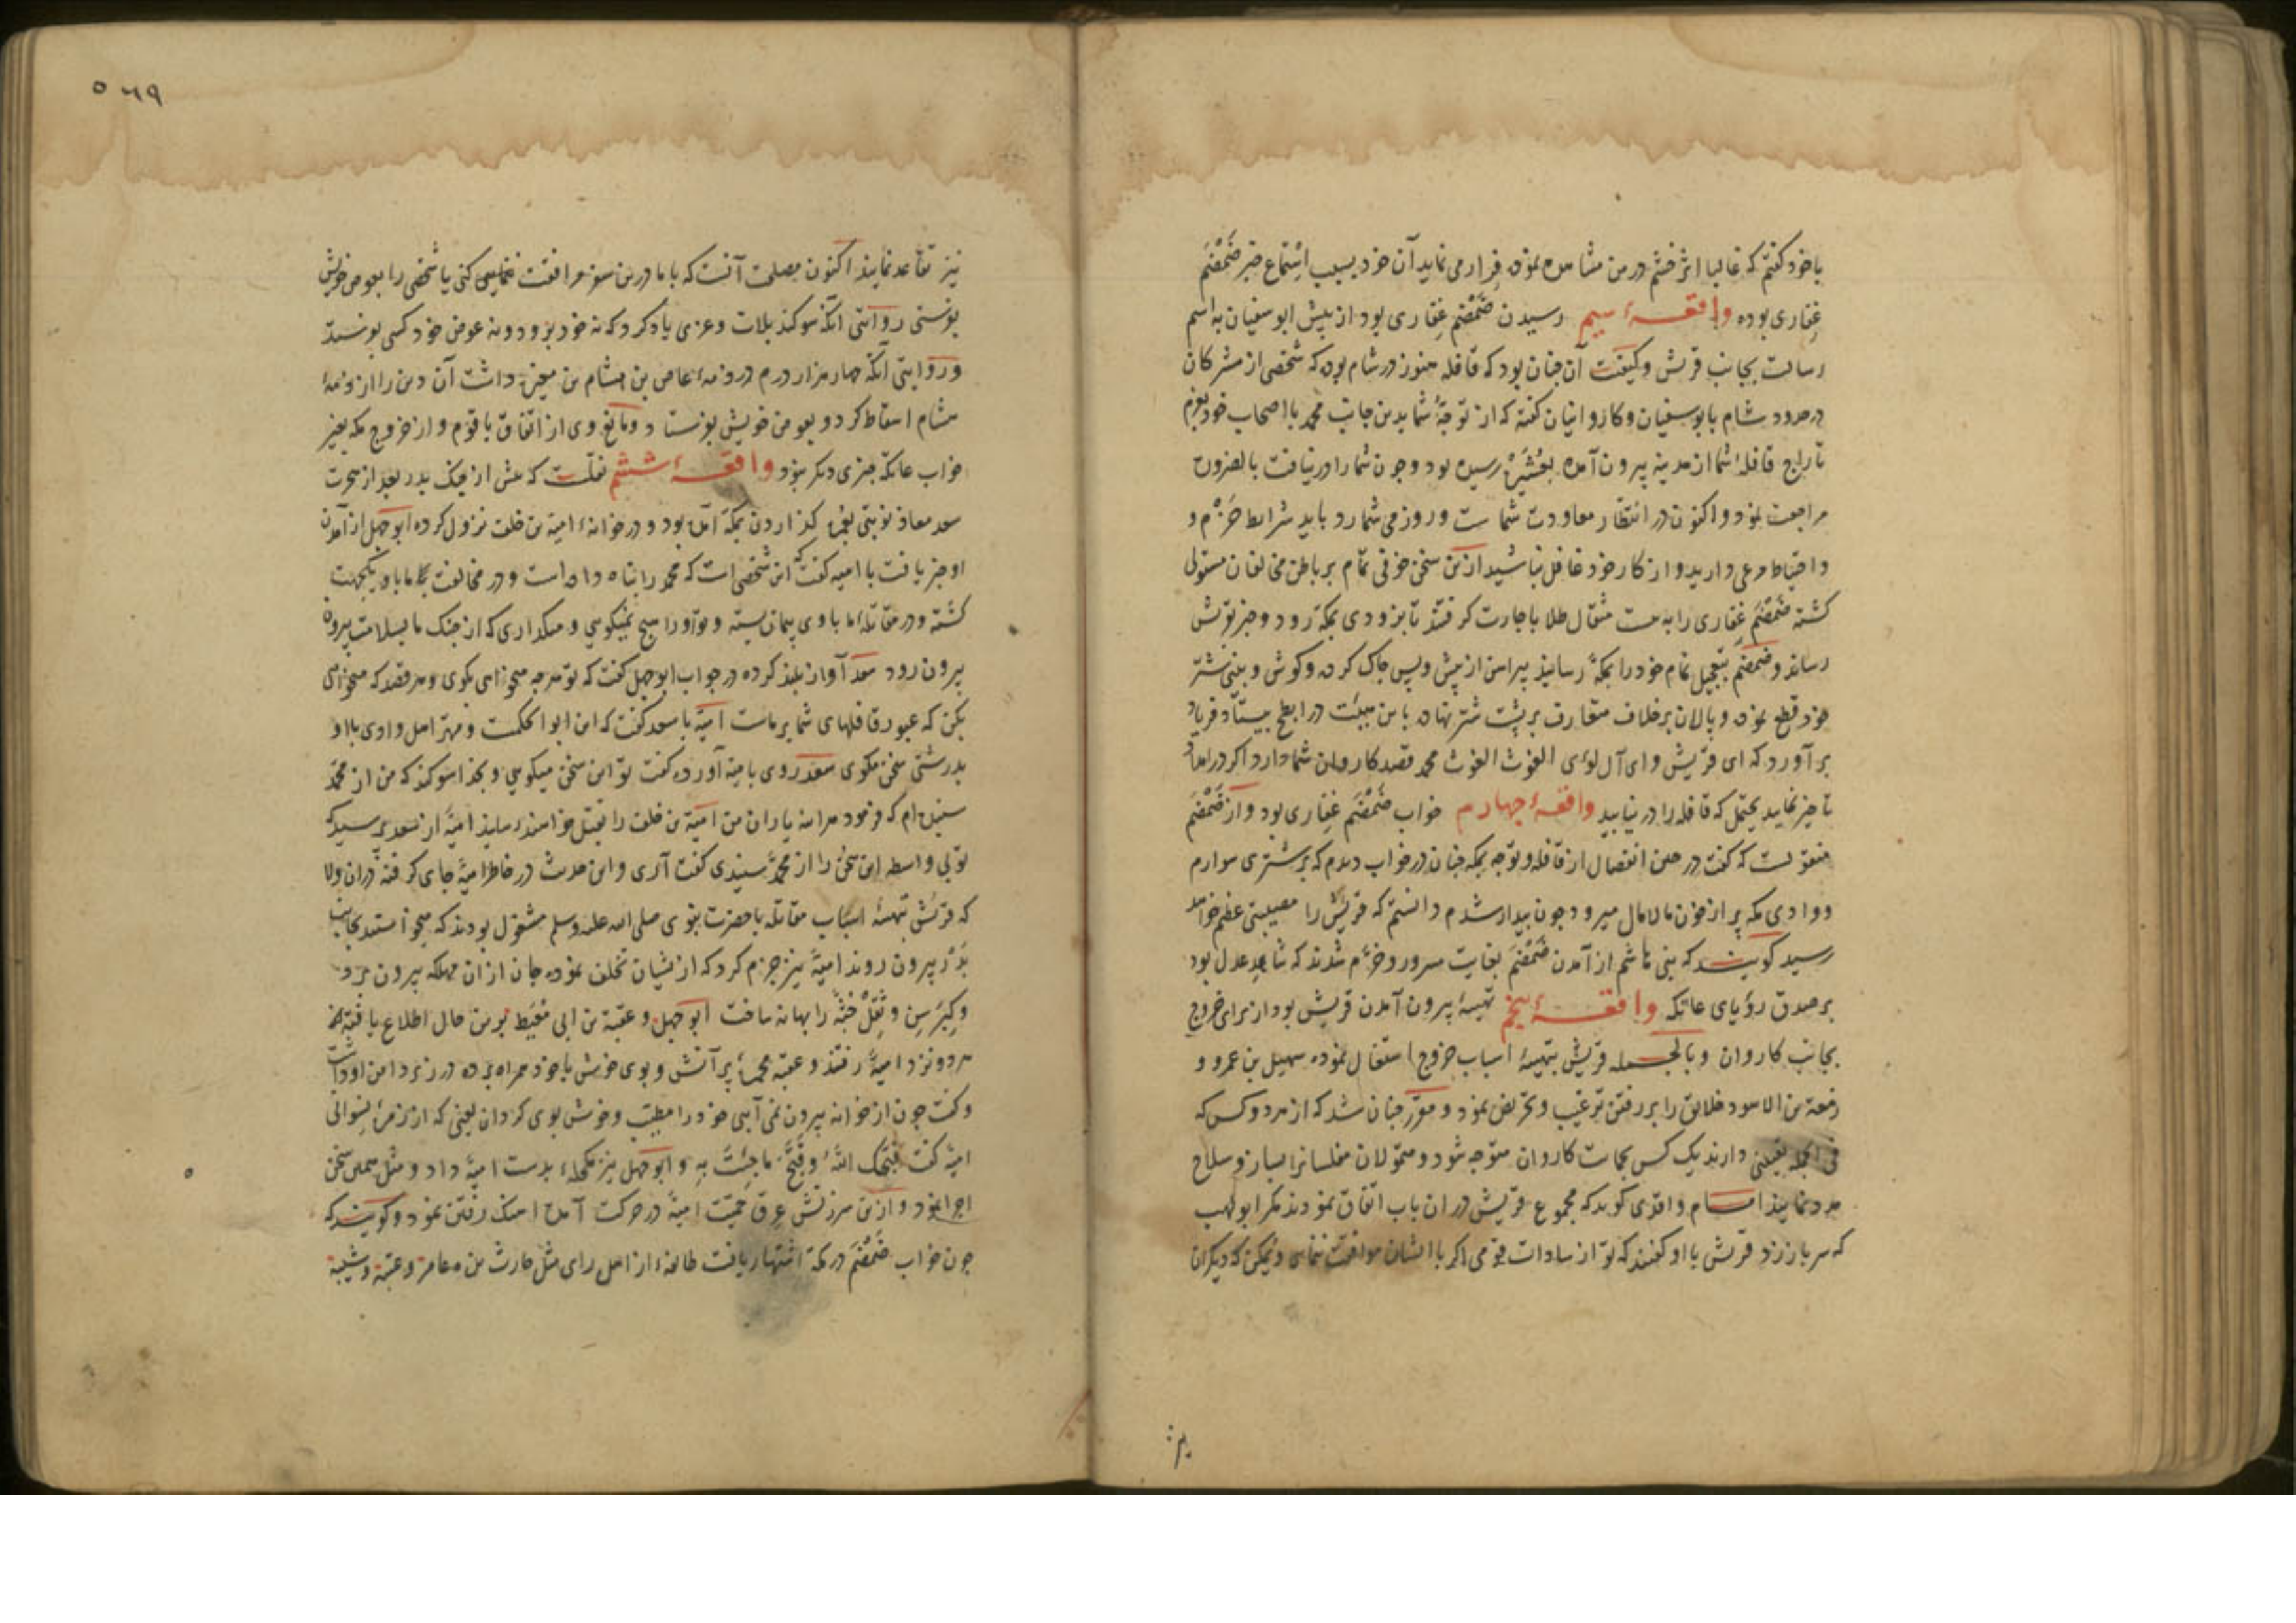 باخود کفتم که غالبا اثر خشم درمن مشاهده نموده فرار می نماید آن خود بسبب استماع خبر ضَمْضَم
غِفاری بوده واقعهٔ سیم رسیدن ضَمْضَم غِفاری بود از پیش ابوسفیان باسم
رسالت بجانب قریش وکیفیت آن چنان بود که قافله هنوز در شام بود که شخصی از مشرکان
در حدود شام با ابوسفیان وکاروانیان کفته که از توجهٔ شما بدین جانب محمد با اصحاب خود بعزم
تاراج قافلهٔ شما از مدینه بیرون آمده بعُشَیْرَه رسیده بود وچون شما را درنیافت بالضرورة
مراجعت نمود واکنون در انتظار معاودت شما ست وروز می شمارد باید شرایط حَزْم و
واحتیاط مرعی دارید واز کار خود غافل نباشید ازین سخن خوفی تمام بر باطن مخالفان مستولی
کشته ضَمْضَم غِفاری را به بیست مثقال طلا باجارت کرفتند تا بزودی بمکه رود وخبر بقریش
رساند وضمضم بتعجیل تمام خود را بمکه رسانید پیراهن از پیش وپس چاک کرده وکوش وبینی شتر
خود قطع نموده وپالان برخلاف متعارف بر پشت شتر نهاده باین هیئت در ابطح بیستاد وفریاد
برآورد که ای قریش وای آل لوی الغوث الغوث محمد قصد کاروان شما دارد اکر در امداد
تاخیر نمایید یحتمل که قافله را درنیابید واقعهٔ چهارم خواب ضَمْضَم غِفاری بود واز ضَمْضَم
منقولست که کفت در حین انفصال از قافله وتوجه بمکه چنان در خواب دیدم که بر شتری سوارم
ووادی مکه پر از خون مالامال میرود چون بیدار شدم دانستم که قریش را مصیبتی عظیم خواهد
رسید کویند که بنی هاشم از آمدن ضَمْضَم بغایت مسرور وخرّم شدند که شاهد عدل بود
بر صدق رؤیای عاتکه واقعهٔ پنجم تهیهٔ بیرون آمدن قریش بود از برای خروج
بجانب کاروان وبالجمله قریش بتهیهٔ اسباب خروج اشتغال نموده سهیل بن عمرو و
زمعة بن الاسود خلایق را بر رفتن ترغیب وتحریض نمود ومقرّر چنان شد که از هر دو کس که
فی الجمله دارند یک کس بحمایت کاروان متوجه شود ومتمولان مفلسانرا بساز وسلاح
مدد نمایند امام واقدی کوید که مجموع قریش در ان باب اتفاق نمودند مکر ابولهب
که سر باز زد قریش با او کفتند که تو از سادات قومی اکر با ایشان موافقت ننمایی ممکن که دیکران
نیز تقاعد نمایند اکنون مصلحت آنست که با ما درین سفر موافقت نمایی یا شخصی را بعوض خویش
بفرستی روایتی آنکه سوکند بلات وعزی یاد کرد که نه خود برود ونه عوض خود کسی بفرستد
وروایتی آنکه چهار هزار درم در ذمهٔ عاص بن هشام بن مغیره داشت آن دین را از ذمهٔ
هشام اسقاط کرد وبعوض خویش بفرستاد ومانع وی از اتفاق با قوم واز خروج مکه بغیر
خواب عاتکه چیزی دیکر نبود واقعهٔ ششم نقلست که پیش از جنک بدر بعد از هجرت
سعد معاذ نوبتی بعُمره کزاردن بمکه آمده بود ودر خانهٔ امیة بن خلف نزول کرده ابوجهل از آمدن
او خبر یافت با امیه کفت این شخص است که محمد را پناه داده است ودر مخالفت ما با او یکجهت
کشته ودر مقاتلهٔ ما با وی پیمان بسته وتو او را هیچ نمیکویی ومیکذاری که از چنک ما بسلامت بیرون
بیرون رود سعد آواز بلند کرده در جواب ابوجهل کفت که تو هرچه میخواهی بکوی وهر قصد که میخواهی
بکن که عبور قافلهای شما بر ماست امیّه با سعد کفت که این ابوالحکمست ومهتر اهل وادی با او
بدرشتی سخن مکوی سعد روی بامیه آورده کفت تو این سخن میکویی وبخدا سوکند که من از محمّد
شنیده ام که فرمود هرآینه یاران من امیّة بن خلف را بقتل خواهند رسانید امیّه از سعد پرسید که
تو بی واسطه این سخن را از محمّد شنیدی کفت آری واین حدیث در خاطر امیّه جای کرفته دران ولا
که قریش بتهیهٔ اسباب مقاتله با حضرت نبوی صلی الله علیه وسلم مشغول بودند که میخواستند بجانب
بَدْر بیرون روند امیّه نیز جزم کرد که از یشان تخلف نموده جان از ان مهلکه بیرون برد
وکِبَر سِن وثِقَلْ جُثّه را بهانه ساخت ابوجهل وعقبة بن ابی مُعَیط برین حال اطلاع یافته
هردو نزد امیّه رفتند وعقبه مجمرهٔ پر آتش وبوی خوش با خود همراه برده در زیر دامن او داشت
وکفت چون از خانه بیرون نمی آیی خود را مطیّب وخوش بوی کردان یعنی که از زمرهٔ نسوانی
امیّه کفت قَبَّحَکَ اللهُ وقَبَّحَ ما جِئتَ بِهِ وابوجهل نیز مکحلهٔ بدست امیّه داد ومثل همان سخن
اجرا نمود وازین سرزنش عِرق حمیّت امیّه در حرکت آمده آهنک رفتن نمود وکویند که
چون خواب ضَمْضَم در مکه اشتهار یافت طایفهٔ از اهل رای مثل حارث بن عامر وعتبة وشیبة